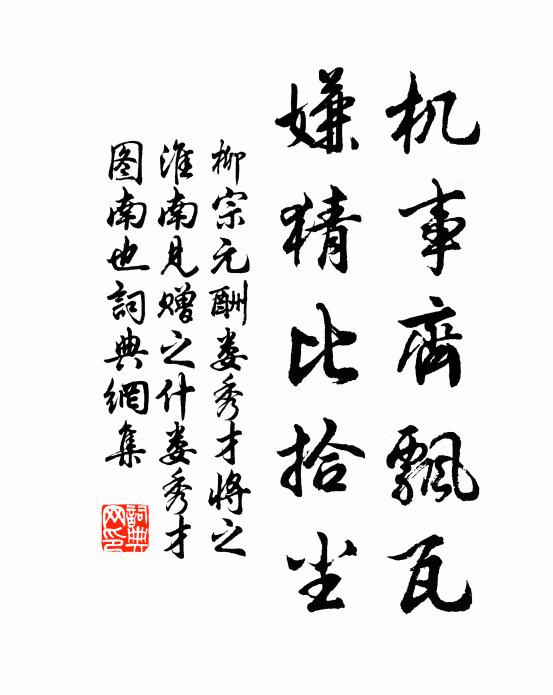 机事齊飄瓦
嫌猜比拾尘
柳宗元酬娄秀才将之
淮南見赠之什娄秀才
图南也詞典網集
詞典
网印